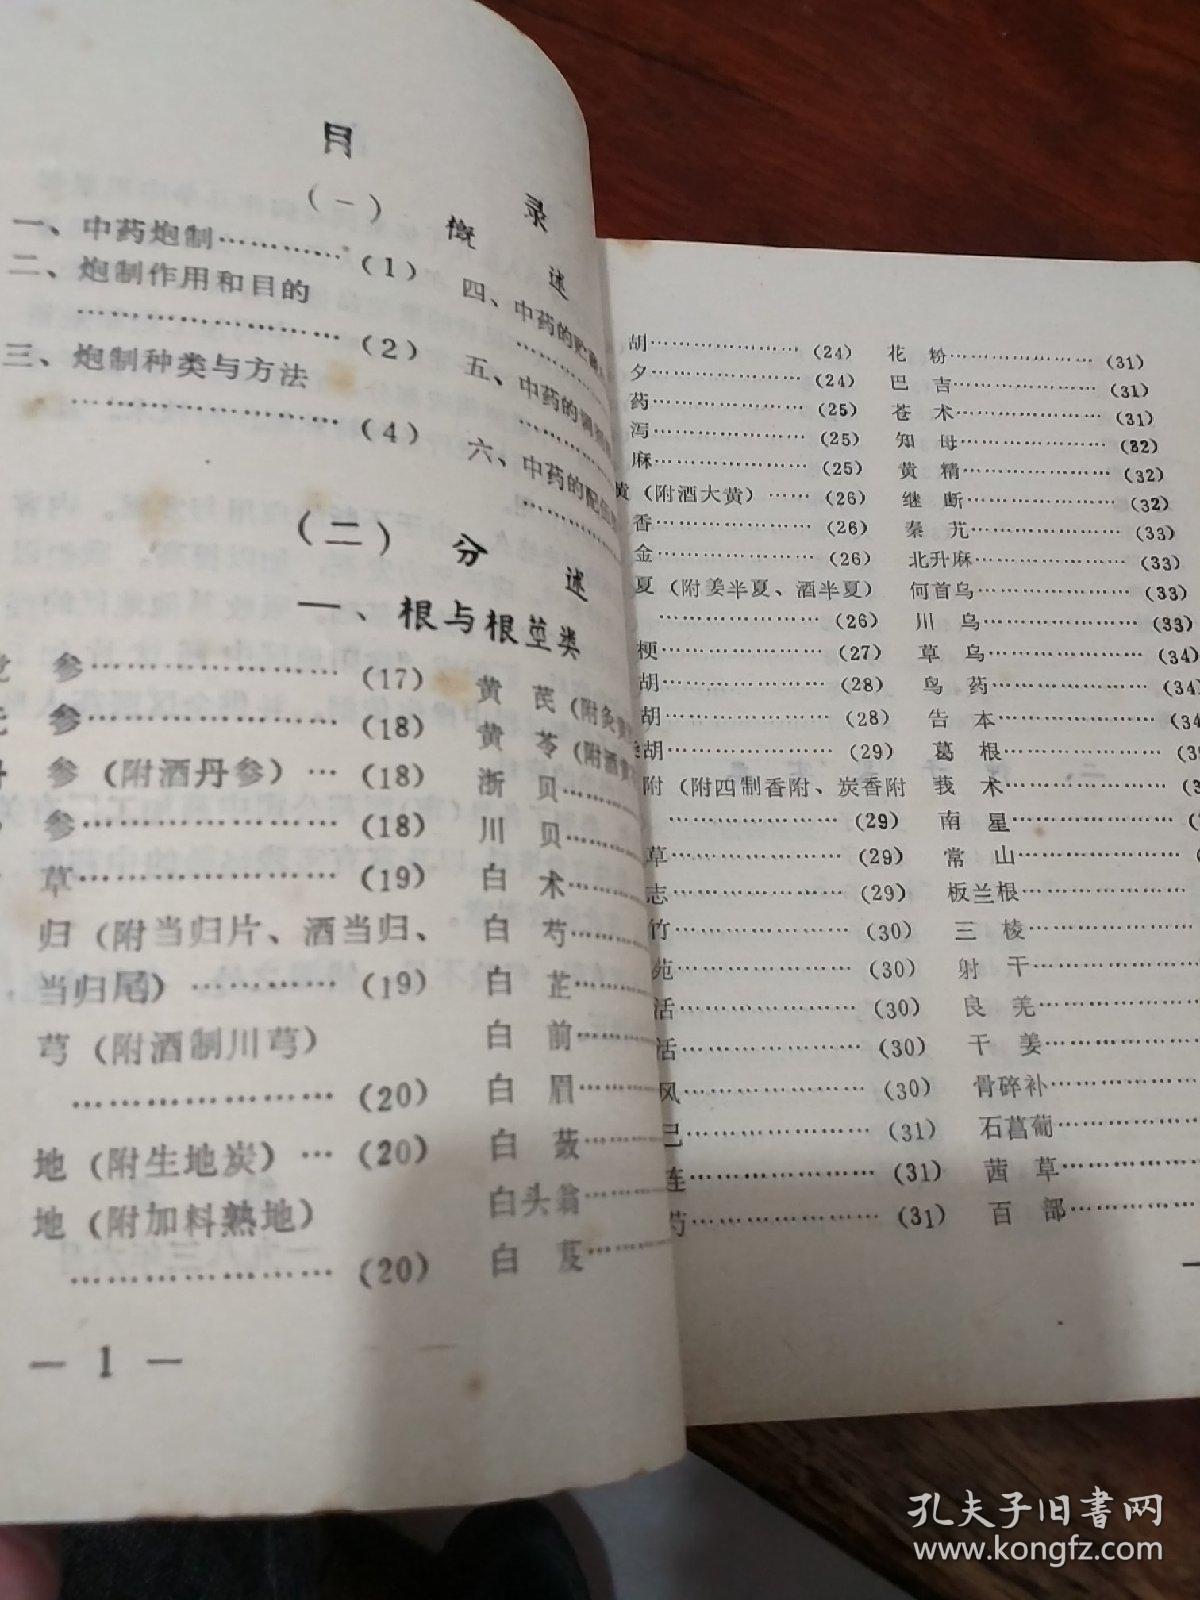 目录
（一）概述
一、中药炮制…………（1）
二、炮制作用和目的
……………………（2）
三、炮制种类与方法
……………………（4）
四、中药的贮藏
五、中药的调
六、中药的配伍
（二）分述
一、根与根茎类
参……………………（17）
参……………………（18）
参（附酒丹参）…（18）
参……………………（18）
草……………………（19）
归（附当归片、酒当归、
当归尾）…………（19）
芎（附酒制川芎）
……………………（20）
地（附生地炭）…（20）
地（附加料熟地）
……………………（20）
黄 芪（附灸黄
黄 芩（附酒黄
浙 贝………
川 贝………
白 术………
白 芍………
白 芷………
白 前………
白 眉………
白 蔹………
白头翁………
白 芨………
— 1 —
胡……………………(24)
夕……………………(24)
药……………………(25)
泻……………………(25)
麻……………………(25)
黄（附酒大黄）……(26)
香……………………(26)
金……………………(26)
夏（附姜半夏、酒半夏）
……………………(26)
梗……………………(27)
胡……………………(28)
胡……………………(28)
胡……………………(29)
附（附四制香附、炭香附
……………………(29)
草……………………(29)
志……………………(29)
竹……………………(30)
苑……………………(30)
活……………………(30)
活……………………(30)
风……………………(30)
巳……………………(31)
连……………………(31)
芍……………………(31)
花 粉…………………(31)
巴 吉…………………(31)
苍 术…………………(31)
知 母…………………(32)
黄 精…………………(32)
继 断…………………(32)
秦 艽…………………(33)
北升麻…………………(33)
何首乌…………………(33)
川 乌…………………(33)
草 乌…………………(34)
乌 药…………………(34)
告 本…………………(34
葛 根…………………(3
莪 术…………………(3
南 星…………………(
常 山…………………(
板兰根…………………
三 棱…………………
射 干…………………
良 羌…………………
干 姜…………………
骨碎补…………………
石菖蒲…………………
茜 草…………………
百 部…………………
孔夫子旧书网
www.kongfz.com